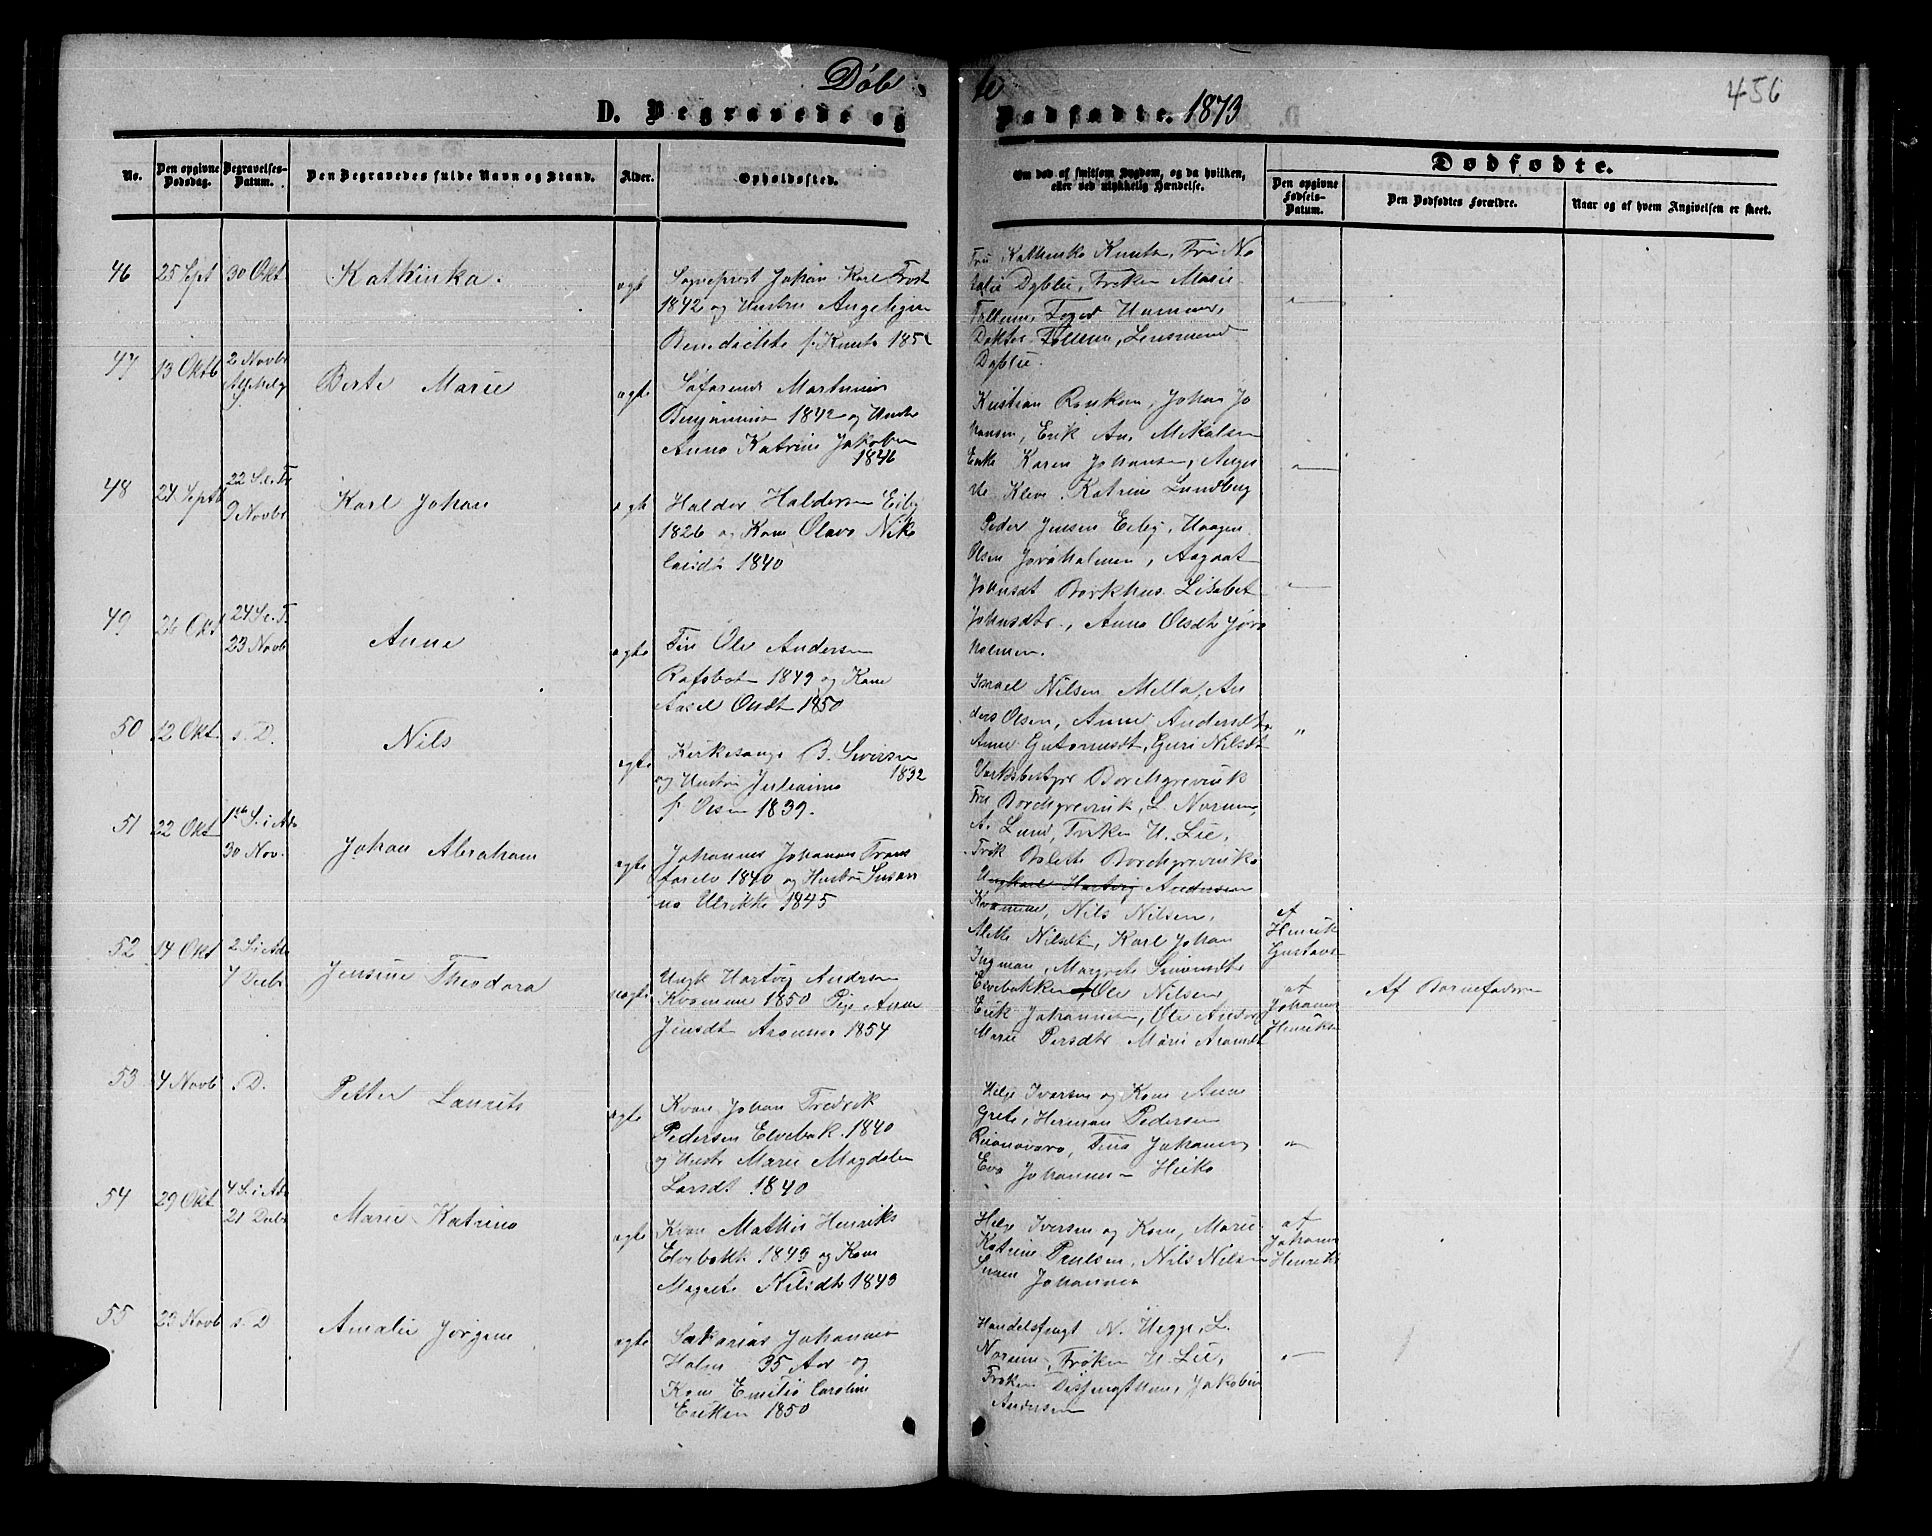 Døbte
456
D. Begravede og Dødfødte. 1873
No.
Den opgivne Dødsdag.
Begravelses-Datum.
Den Begravedes fulde Navn og Stand.
Alder.
Opholdssted.
Om død af smitsom Sygdom, og da hvilken, eller ved ulykkelig Hændelse.
Dødfødte.
Den opgivne Fødsels-Datum.
Den Dødfødtes Forældre.
Naar og af hvem Angivelsen er skeet.
46 25 Sept 30 Okt Kathinka. ægt
Sogneprest Johan Karl Frost
1842 og Hustru Angeligue
Benedichte f. Knuts
Fru Kathinka Knuts, Fru Na
talie Dyblie, Frøken Marie
Follum, Foged Hammer,
Doktor Follum, Lensmand
Dyblie.
47 13 Oktb 2 Novbr Berte Marie ægte
Søfarende Martinius
Benjaminsen 1842 og Hustr
Anna Katrine Jakobsen
1846
Kristian Ronkom, Johan Jo
hansen, Erik An. Mikalsen
Enke Karen Johansen,
Kleve, Katrine Lundberg
48 24 Septb 22 S.e.Tr 9 Novbr Karl Johan ægte
Haldor Haldorsen Eiby
1826 og Kone Olava Niko
laisdr 1840
Peder Jensen Eiby, Haagen
Olsen Jøraholmen, Aagaat
Johnsdt Borkhus. Lisabet
Johnsdtr., Anna Olsdtr Jøra
holmen.
49 26 Okt 24 S.e.Tr. 23 Novb Anne ægte
Fin Ole Andersen
Rafsbotn 1849 og Kone
Aasel Olsdt 1850
Israel Nilsen, Mella, An
ders Olsen, Anne Andersdtr
Anne Gutormsdt, Guri Nilsdt
50 12 Okt s. D. Nils ægte
Kirkesanger B. Sivirsen
1832
og Hustru Juliane
f. Olsen 1839.
Værksbestyr Borchgrevink
Fru Borchgrevink, L. Norum,
A. Lund, Frøken H. Lie,
Frøk Bolette Borchgrevink
51 22 Okt 1ste S. i Adv 30 Nov. Johan Abraham ægte
Johannes Johansen Trans
farelv 1840 og Hustru Susan
na Ulrikke 1845
Ungkarl Hartvig Andersen
Kvamme, Nils Nilsen,
Mette Nilsdt, Karl Johan
Ingman, Margrete Simonsdtr
Elvebakken
af
Henrik
Gustavs
52 14 Okt 2 S. i Adv 7 Decbr Jensine Theodora uægte
Ungk Hartvig Andersen
Kvamme 1850 Pige Anne
Jensdt Aronnes 1854
Ole Nilsen
Erik Johannesen, Ole Anders
Marie Persdtr Marie Aronsdt
af
Johannes
Henriks
Af Barnefaderen
53 4 Novb s. D. Petter Laurits ægte
Kvæn Johan Fredrik
Pedersen Elvebak. 1840
og Hustr Marie Magdalen
Larsdt 1840
Helge Iversen og Kone Anne
Grete, Herman Pedersen
Johannes
Eva Johannes
54 29 Okt 4 S. i Adv 21 Decbr Marie Katrine ægte
Kvæn Mathis Henriks
Elvebakk 1849 og Kone
Magrete Nilsdtr 1849
Helge Iversen og Kone, Marie
Katrine Paulsen, Nils Nilsen
Johannes
af
Johannes
Henriks
55 23 Novb s. D Amalie Jørgine ægte
Sakarias Johannes
Holm 35 Aar og
Kone Emilie Caroline
Eriksen 1850
Handelsfuldmægt N. Ugge, L.
Norum, Frøken H. Lie,
Frøken, Jakobine
Andersen